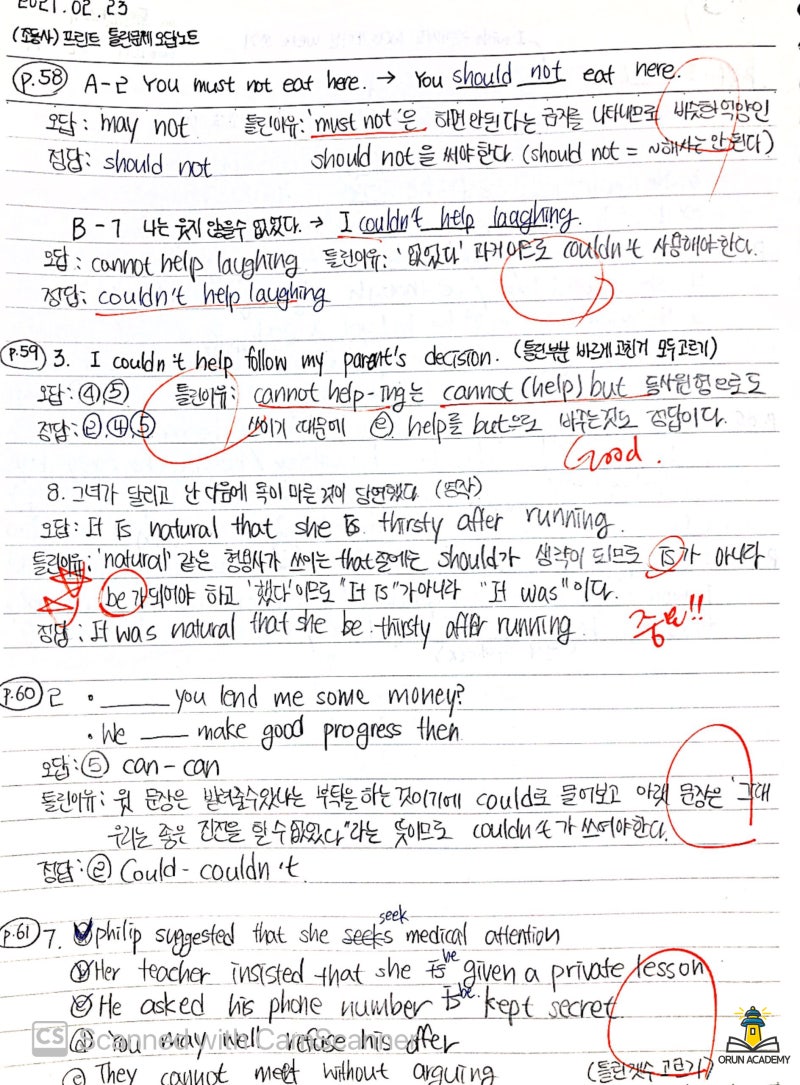 2021.02.23
(조동사) 프린트 틀린문제 오답노트
p.58 A-2 You must not eat here. → You should not eat here.
오답: may not 틀린이유: 'must not'은 하면 안된다는 금지를 나타내므로 비슷한 억양인
정답: should not should not을 써야한다 (should not = ~해서는 안 된다)
B-7 나는 웃지 않을수 없었다. → I couldn't help laughing.
오답: cannot help laughing 틀린이유: '없었다' 과거이므로 couldn't 사용해야한다.
정답: couldn't help laughing
p.59 3. I couldn't help follow my parent's decision. (틀린부분 바르게 고친거 모두고르기)
오답: ④,⑤ 틀린이유: cannot help-ing는 cannot (help) but 동사원형으로도
정답: ②,④,⑤ 쓰이기 때문에 ② help를 but으로 바꾸는것도 정답이다.
Good.
8. 그녀가 달리고 난 다음에 목이 마른 것이 당연했다 (영작)
오답: It is natural that she is thirsty after running.
틀린이유: 'natural' 같은 형용사가 쓰이는 that절에는 should가 생략이 되므로 is가 아니라
be가 되어야 하고 '했다'이므로 "It is"가 아니라 "It was"이다.
정답: It was natural that she be thirsty after running. 중요!!
p.60 2 • ____ you lend me some money?
• We ____ make good progress then
오답: ⑤ can - can
틀린이유: 윗 문장은 빌려줄수있냐는 부탁을 하는 것이기에 could로 물어보고 아랫 문장은 '그때
우리는 좋은 진전을 할 수 없었다"라는 뜻이므로 couldn't가 쓰여야한다.
정답: ② Could - couldn't
p.61 7. ⓐ philip suggested that she seeks seek medical attention
ⓑ Her teacher insisted that she is be given a private lesson
ⓒ He asked his phone number is be kept secret
ⓓ You may well refuse his offer
ⓔ They cannot meet without arguing (틀린갯수 고르기)
CS Scanned with CamScanner
ORUN ACADEMY